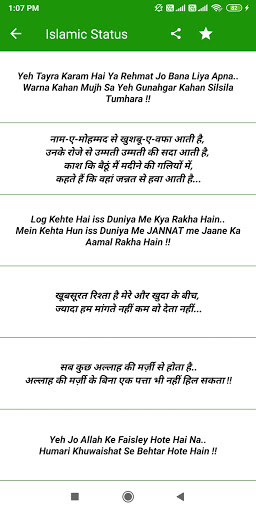 1:07 PM
82
Islamic Status
Yeh Tayra Karam Hai Ya Rehmat Jo Bana Liya Apna..
Warna Kahan Mujh Sa Yeh Gunahgar Kahan Silsila
Tumhara !!
नाम-ए-मोहम्मद से खुशबू-ए-वफा आती है,
उनके रोजे से उम्मती उम्मती की सदा आती है,
काश कि बैठूं मैं मदीने की गलियों में,
कहते हैं कि वहां जन्नत से हवा आती है...
Log Kehte Hai iss Duniya Me Kya Rakha Hain..
Mein Kehta Hun iss Duniya Me JANNAT me Jaane Ka
Aamal Rakha Hain !!
खूबसूरत रिश्ता है मेरे और खुदा के बीच,
ज्यादा हम मांगते नहीं कम वो देता नहीं...
सब कुछ अल्लाह की मर्ज़ी से होता है..
अल्लाह की मर्ज़ी के बिना एक पत्ता भी नहीं हिल सकता !!
Yeh Jo Allah Ke Faisley Hote Hai Na..
Humari Khuwaishat Se Behtar Hote Hain !!